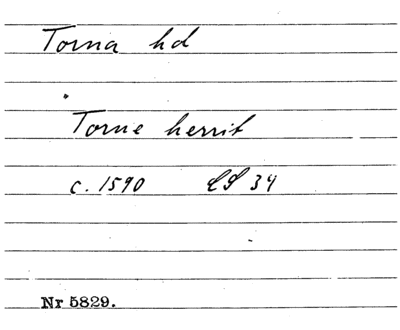 Torna hd
Torne herrit
c. 1590 LS 34
Nr 5829.